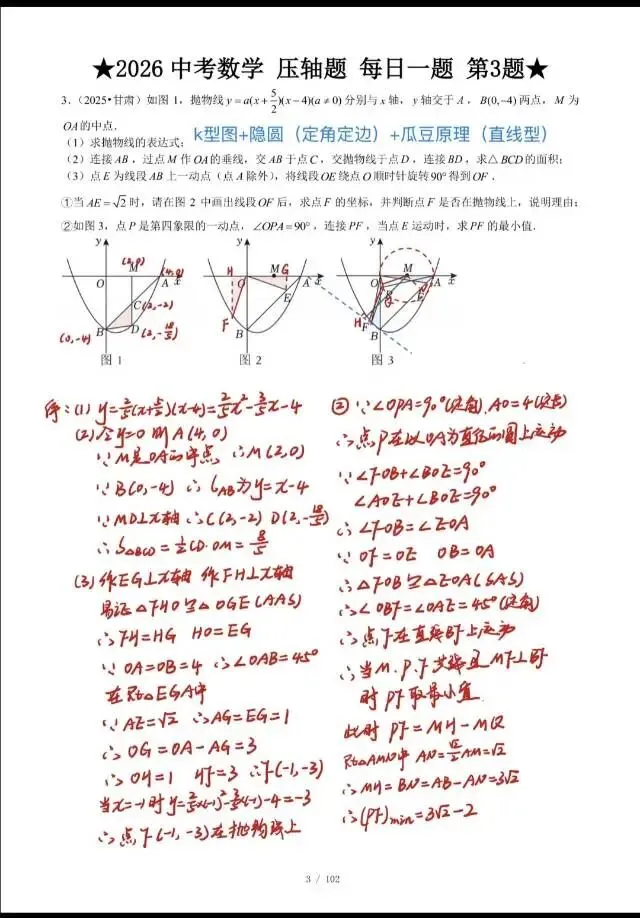 ★2026 中考数学 压轴题 每日一题 第3题★
3.（2025•甘肃）如图 1，抛物线 y = a(x + 5/2)(x − 4)(a ≠ 0) 分别与 x 轴，y 轴交于 A，B(0,−4) 两点，M 为
OA 的中点．
k型图+隐圆（定角定边）+瓜豆原理（直线型）
（1）求抛物线的表达式；
（2）连接 AB，过点 M 作 OA 的垂线，交 AB 于点 C，交抛物线于点 D，连接 BD，求△BCD 的面积；
（3）点 E 为线段 AB 上一动点（点 A 除外），将线段 OE 绕点 O 顺时针旋转 90° 得到 OF．
①当 AE = √2 时，请在图 2 中画出线段 OF 后，求点 F 的坐标，并判断点 F 是否在抛物线上，说明理由；
②如图 3，点 P 是第四象限的一动点，∠OPA = 90°，连接 PF，当点 E 运动时，求 PF 的最小值．
y (2,0) M (4,0) O A x C (2,-2) (0,-4) B D (2,-18/5)
图 1
y H M G O A x E F B
图 2
y M O A x E H F B
图 3
(1) y=2/5(x+5/2)(x-4)=2/5x²-3/5x-4
(2) 令y=0 则A(4,0)
∵M是OA的中点 ∴M(2,0)
∵B(0,-4) ∴lAB为y=x-4
∵MD⊥x轴 ∴C(2,-2) D(2,-18/5)
∴S△BCD=1/2CD·OM=8/5
(3) 作EG⊥x轴 作FH⊥x轴
易证△FHO≌△OGE(AAS)
∴FH=HG HO=EG
∵OA=OB=4 ∴∠OAB=45°
在Rt△EGA中
∵AE=√2 ∴AG=EG=1
∴OG=OA-AG=3
∴OH=1 HF=3 ∴F(-1,-3)
当x=-1时y=2/5×(-1)²-3/5×(-1)-4=-3
∴点F(-1,-3)在抛物线上
② ∵∠OPA=90°(定角) AO=4(定边)
∴点P在以OA为直径的圆上运动
∵∠FOB+∠BOE=90°
∠AOE+∠BOE=90°
∴∠FOB=∠EOA
∵OF=OE OB=OA
∴△FOB≌△EOA(SAS)
∴∠OBF=∠OAE=45°(定角)
∴点F在直线BF上运动
∴当M、P、F共线且MF⊥BF
时PF取最小值
此时PF=MH-MQ
Rt△AMN中 AN=√2/2AM=√2
∴MH=BN=AB-AN=3√2
∴(PF)min=3√2-2
3 / 102